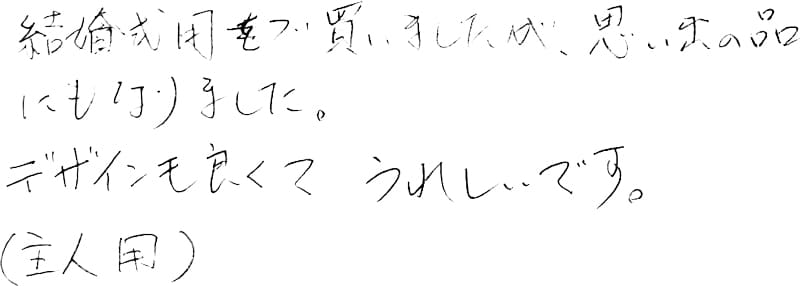 結婚式用で買いましたが、思い出の品
にもなりました。
デザインも良くて うれしいです。
(主人用)